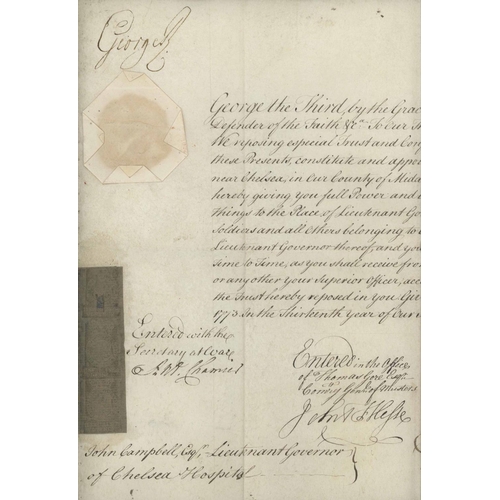 George R
George the Third, by the Grac
Defender of the Faith &c. To Our
We reposing especial Trust and Con
these Presents, constitute and appo
near Chelsea, in our County of Midd
hereby giving you full Power and
things to the Place of Lieutenant Go
Soldiers and all Others belonging to
Lieutenant Governor thereof, and you
time to Time, as you shall receive fro
or any other your Superior Officer, acc
the Trust hereby reposed in you. Gi
1773. In the Thirteenth Year of Our
Entered with the
Secretary at War
Chamier
Entered in the Office
of Thomas Gore Esqr.
Commry Genl. of Musters
John Hesse
John Campbell, Esqr. Lieutenant Governor
of Chelsea Hospital